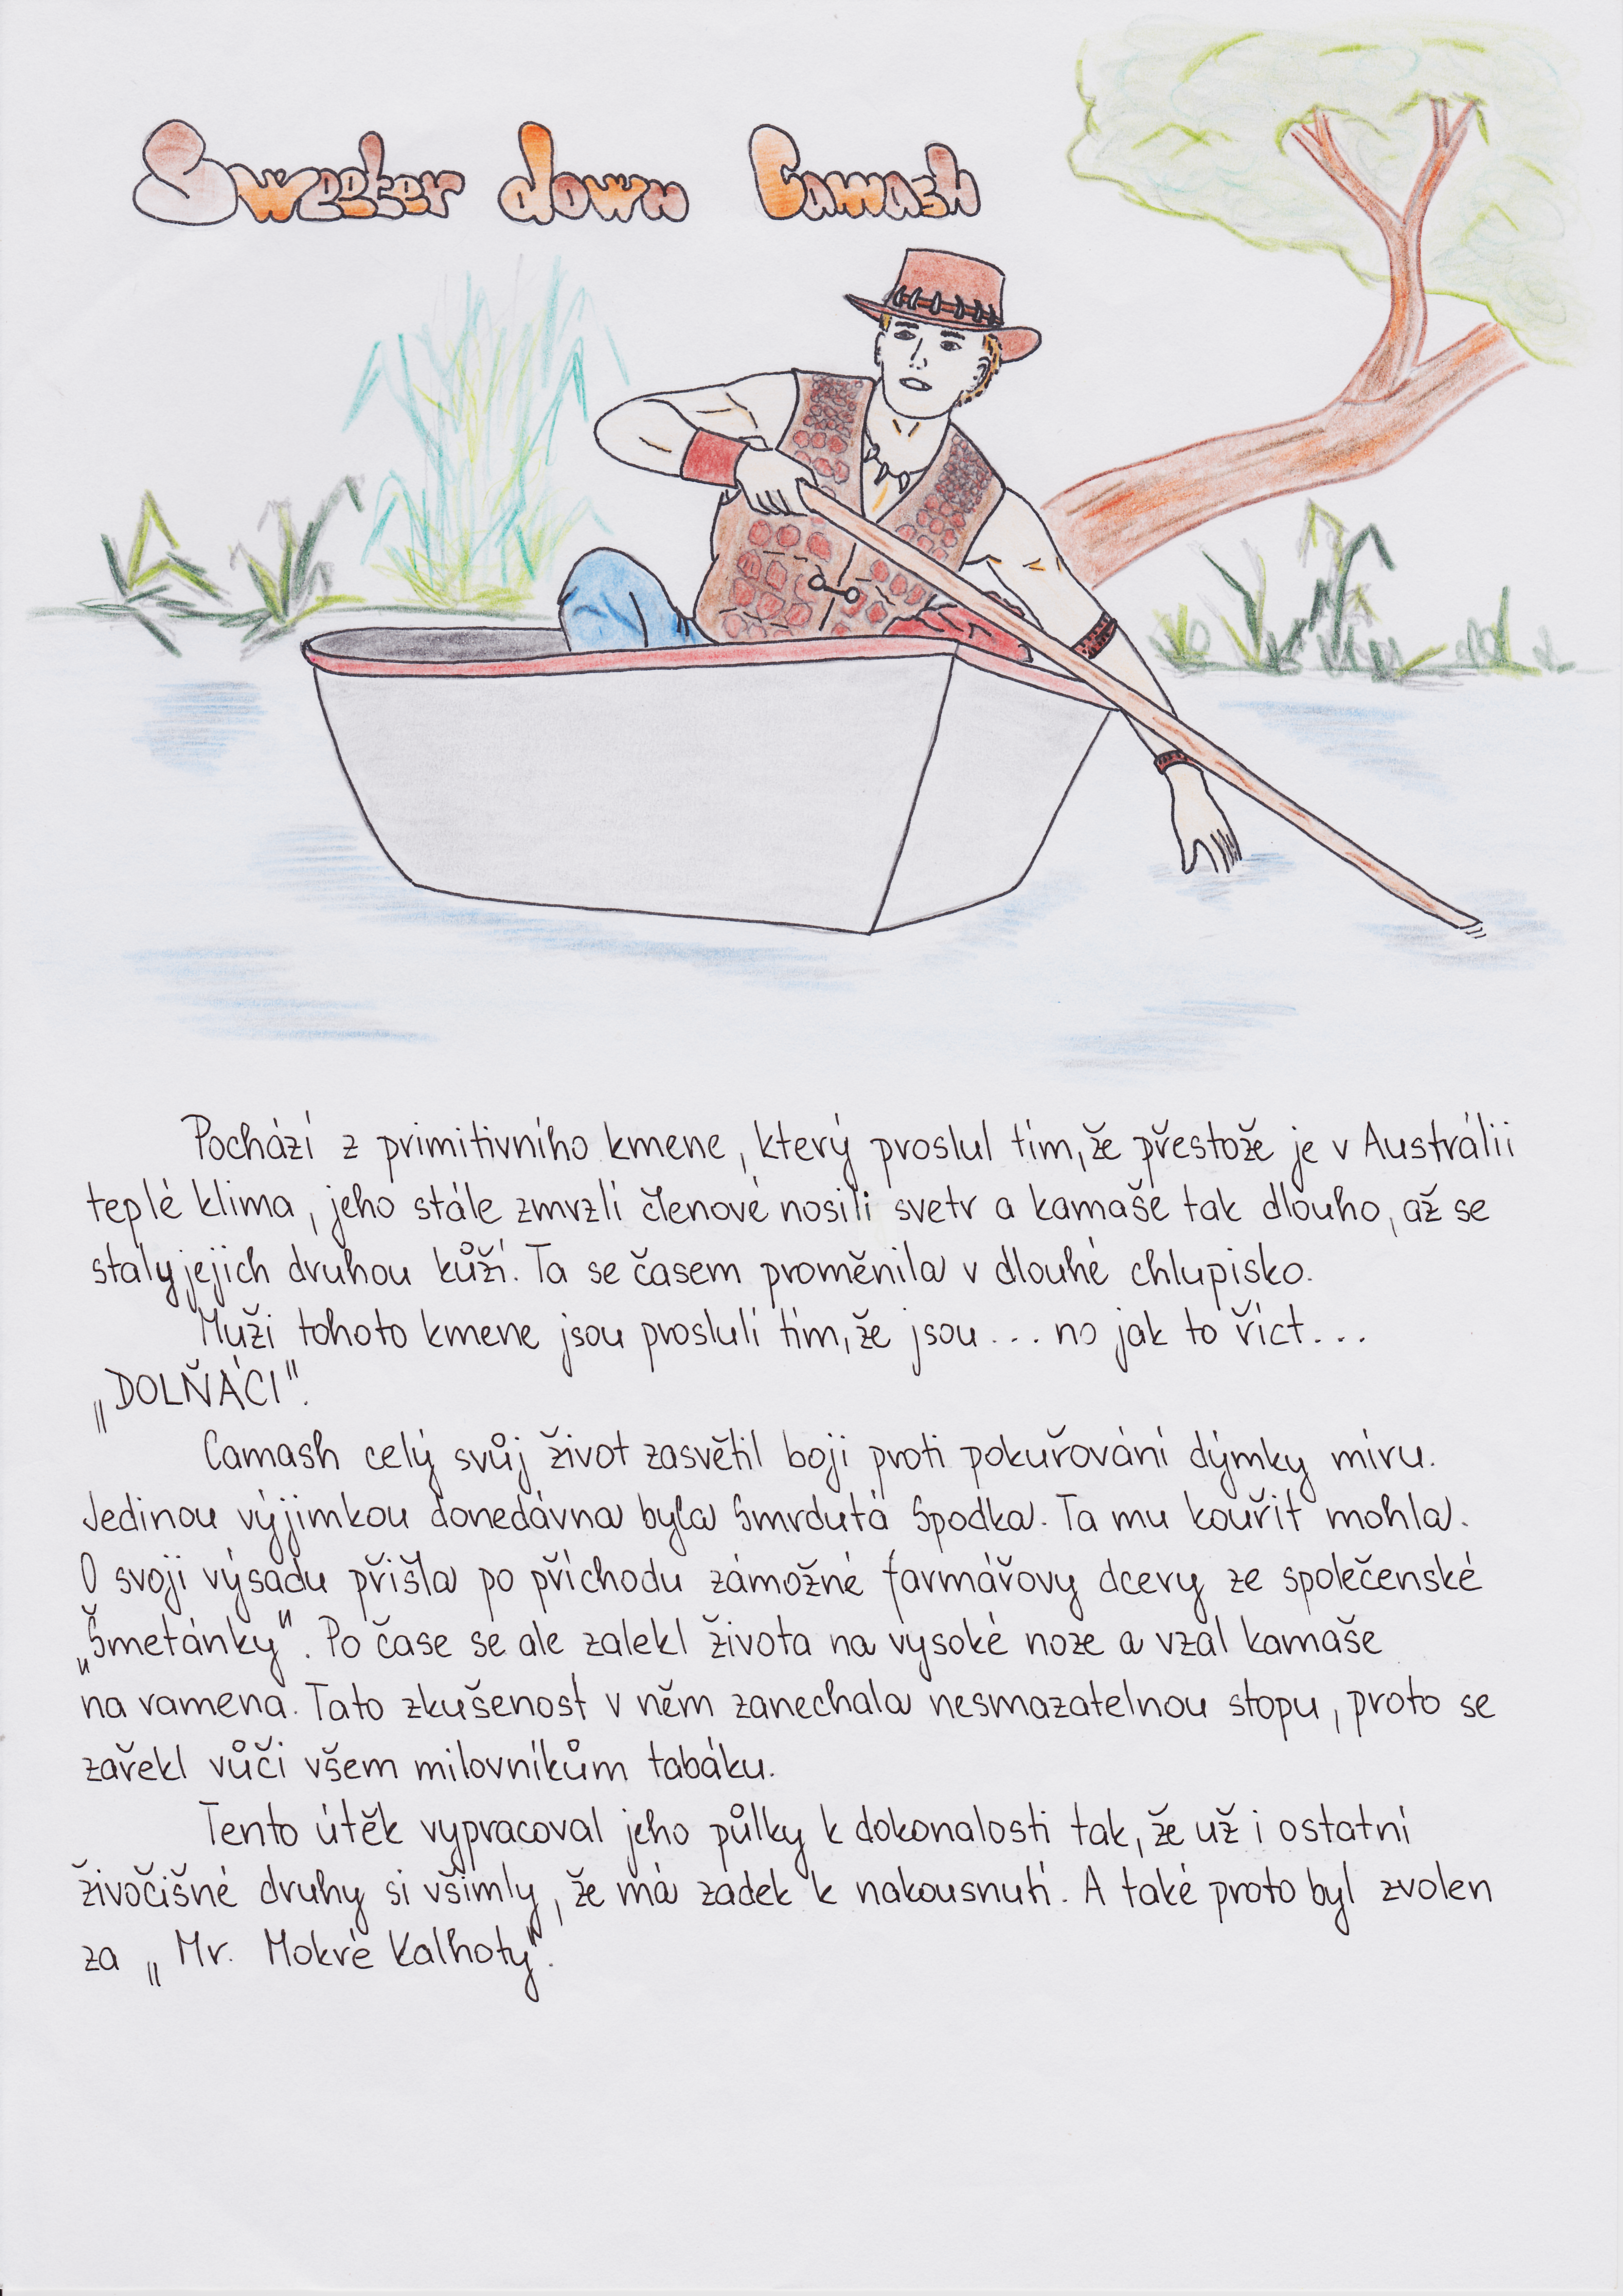 Sweeter down Camash
Pochází z primitivního kmene, který proslul tím, že přestože je v Austrálii
teplé klima, jeho stále zmrzlí členové nosili svetr a kamaše tak dlouho, až se
staly jejich druhou kůží. Ta se časem proměnila v dlouhé chlupisko.
Muži tohoto kmene jsou prosluli tím, že jsou... no jak to říct...
„DOLŇÁCI".
Camash celý svůj život zasvětil boji proti pokuřování dýmky míru.
Jedinou výjimkou donedávna byla Smrdutá Spodka. Ta mu kouřit mohla.
O svoji výsadu přišla po příchodu zámožné farmářovy dcery ze společenské
„Šmetánky". Po čase se ale zalekl života na vysoké noze a vzal kamaše
na ramena. Tato zkušenost v něm zanechala nesmazatelnou stopu, proto se
zařekl vůči všem milovníkům tabáku.
Tento útěk vypracoval jeho půlky k dokonalosti tak, že už i ostatní
živočišné druhy si všimly, že má zadek k nakousnutí. A také proto byl zvolen
za „Mr. Mokré Kalhoty".